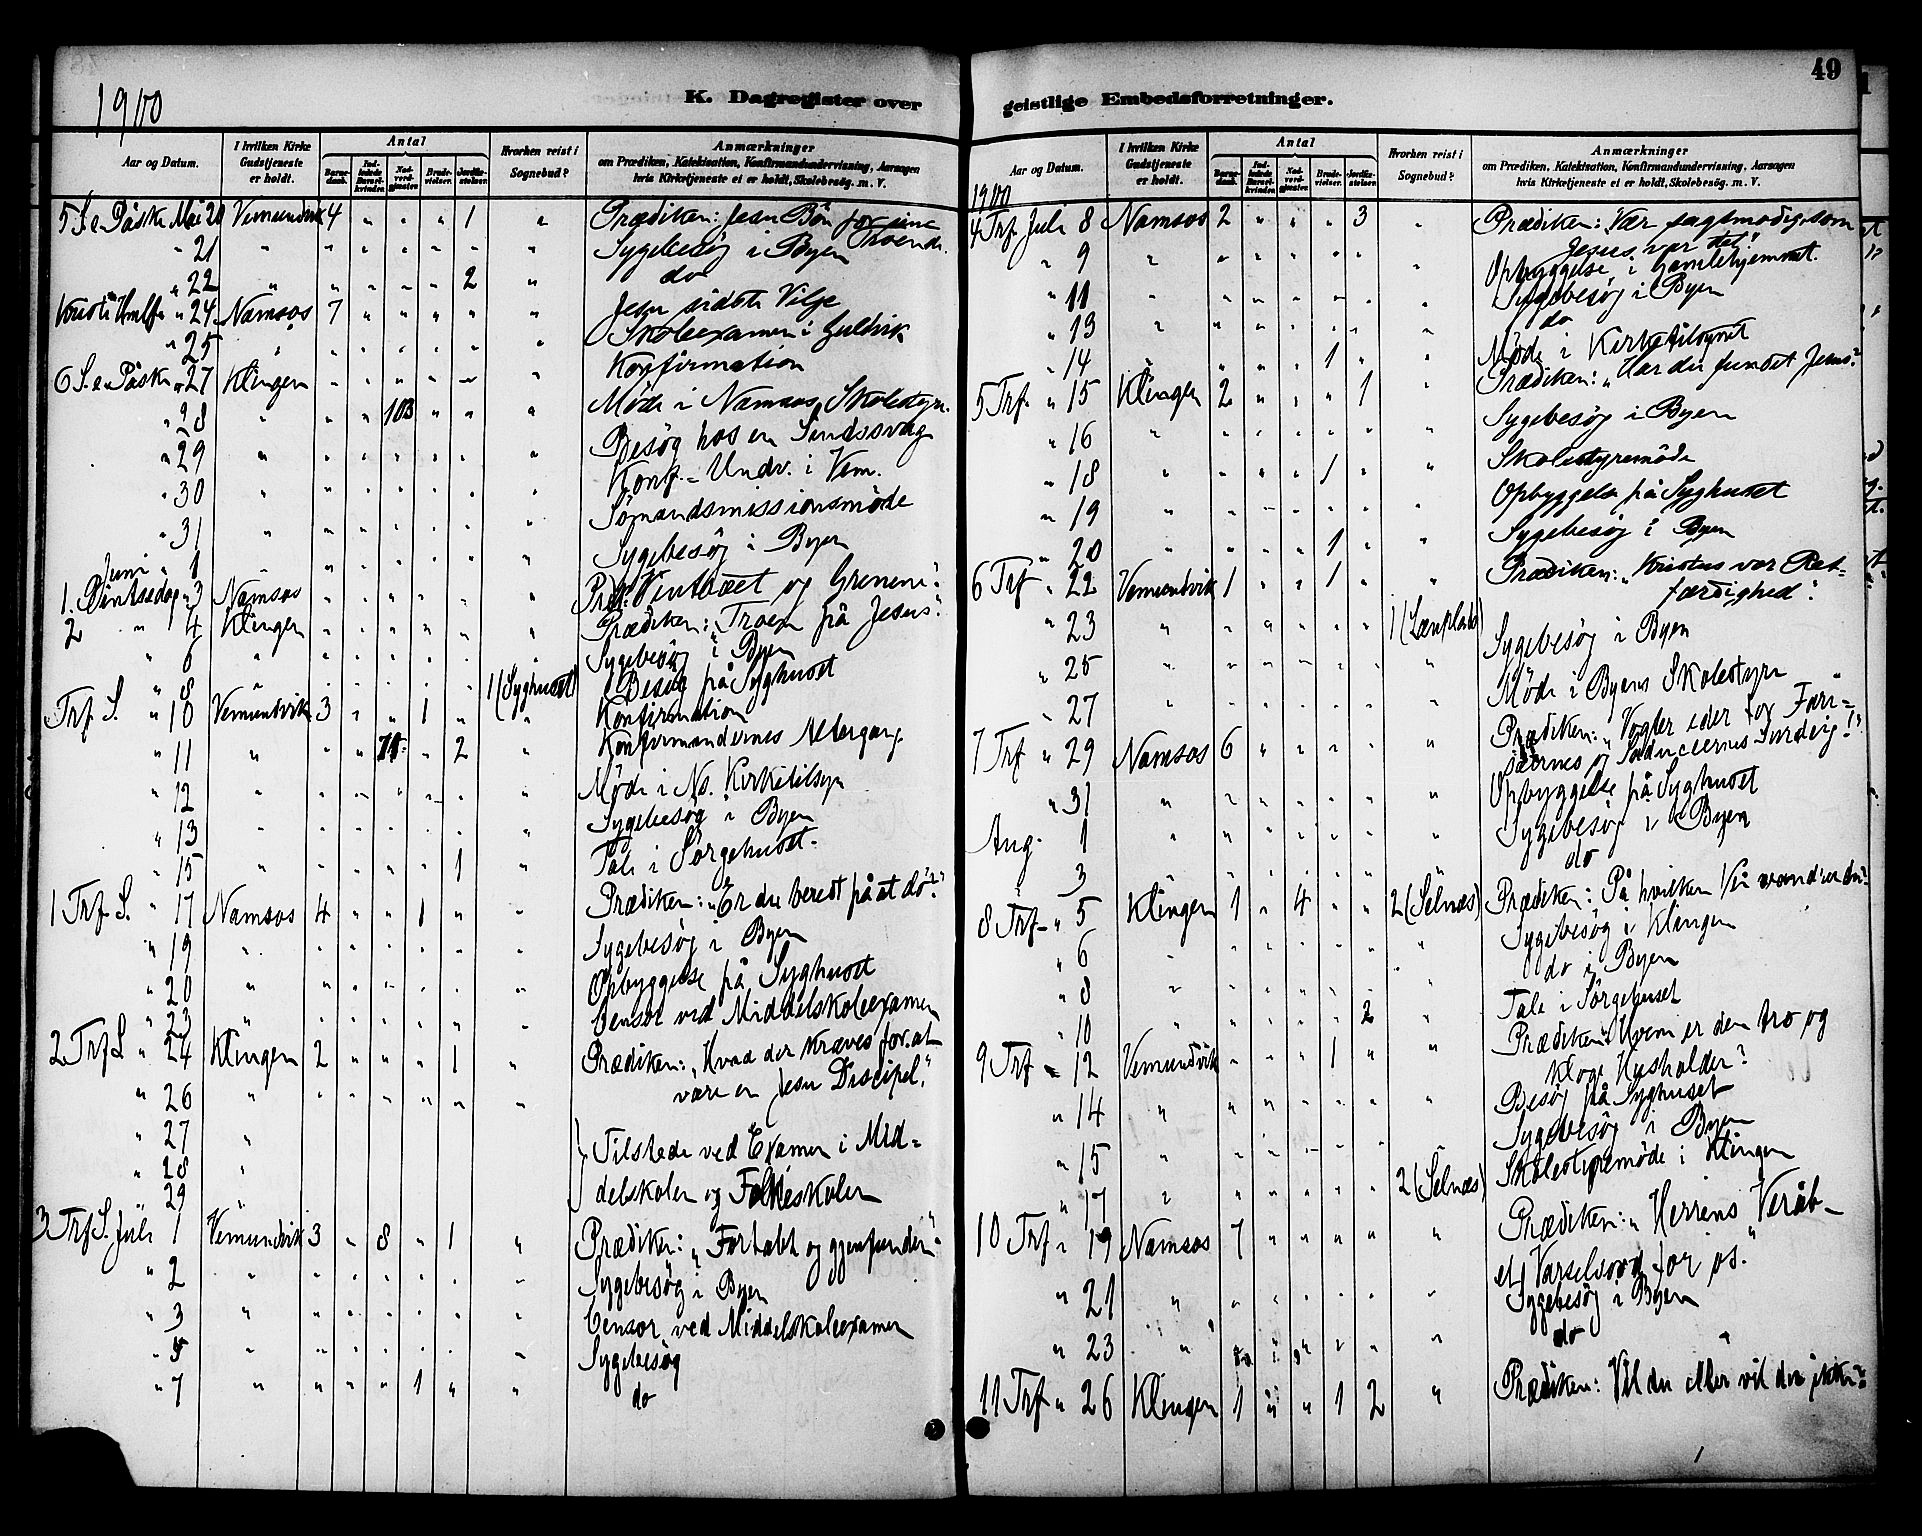 1900
K. Dagregister over
Aar og Datum.
I hvilken Kirke Gudstjeneste er holdt.
Antal
Barnedaab.
Indledede Barselkvinder.
Nadverdgjester.
Brudevielser.
Jordfæstelser.
Hvorhen reist i Sognebud?
Anmærkninger
om Prædiken, Katekisation, Konfirmandundervisning, Aarsagen
hvis Kirketjeneste ei er holdt, Skolebesøg. m. V.
5 S. e Påske Mai 20 Vemundvik 4 " " " 1 " Prædiken: Jesu Bön for sine Troende.
" 21 " " " " " " " Sygebesög i Byen
" 22 " " " " " 2 " do
Kristi Hmlf. " 24 Namsos 7 " " " " " Jesu sidste Vilje
" 25 " " " " " " " Skoleexamen i Guldvik
6 S. e Påske " 27 Klingen " " " " " " Konfirmation
" 28 " " " 103 " " " Möde i Namsos Skolestyre.
" 29 " " " " " " " Besög hos en Sindssvag
" 30 " " " " " " " Konf.-Undv. i Vem.
" 31 " " " " " " " Sömandsmissionsmöde
Juni " 1 " " " " " " Sygebesög i Byen
1. Pintsedag " 3 Namsos " " " " " " Præd: Vintræet og Grenene."
2 " " 4 Klingen " " " " " " Prædiken: "Troen på Jesus."
" 6 " " " " " " " Sygebesög i Byen
" 8 " " " " " " 1 (Syghuset) Besög på Syghuset
Trf. S. " 10 Vemundvik 3 " " 1 " " Konfirmation
" 11 " " " 71 " 2 " Konfirmandernes Altergang.
" 12 " " " " " " " Möde i Ns. Kirketilsyn
" 13 " " " " " " " Sygebesög i Byen
" 15 " " " " " 1 " Tale i Sörgehuset.
1 Trf S. " 17 Namsos 4 " " 1 " " Prædiken: "Er du beredt på at dö?"
" 19 " " " " " " " Sygebesög i Byen
" 20 " " " " " " " Opbyggelse på Syghuset
" 23 " " " " " " " Censor ved Middelskoleexamen
2 Trf S " 24 Klingen 2 " " " 1 " Prædiken: "Hvad der kræves for at
være en Jesu Discipel."
" 26 " " " " " "
" 27 "
" 28 "
" 29 "
Tilstede ved Examen i Mid-
delskolen og Folkeskolen
3 Trf S. Juli 1 Vemundvik 3 " 8 " 1 " Prædiken: "Fortabt og gjenfunden."
" 2 " " " " " " " Sygebesög i Byen
" 3 " " " " " " " Censor ved Middelskoleexamen
" 5 " " " " " " " Sygebesög
" 7 " " " " 1 " " do
49
geistlige Embedsforretninger.
Aar og Datum.
I hvilken Kirke Gudstjeneste er holdt.
Antal
Barnedaab.
Indledede Barselkvinder.
Nadverdgjester.
Brudevielser.
Jordfæstelser.
Hvorhen reist i Sognebud?
Anmærkninger
om Prædiken, Katekisation, Konfirmandundervisning, Aarsagen
hvis Kirketjeneste ei er holdt, Skolebesøg. m. V.
1900
4 Trf. Juli 8 Namsos 2 " " " 3 " Prædiken: "Vær sagtmodig som
Jesus var det"
" 9 " " " " " " " Opbyggelse i Gamlehjemmet.
" 11 " " " " " " " Sygebesög i Byen
" 13 " " " " " " " do
" 14 " " " " 1 " " Möde i Kirketilsynet
5 Trf. " 15 Klingen 2 " " " 1 " Prædiken: "Har du fundet Jesus?"
" 16 " " " " " " " Sygebesög i Byen
" 18 " " " " 1 " " Skolestyremöde
" 19 " " " " " " " Opbyggelse på Syghuset
" 20 " " " " 1 " " Sygebesög i Byen
6 Trf " 22 Vemundvik 1 " " 1 " " Prædiken: "Kristus vor Ret-
færdighed."
" 23 " " " " " " 1 Sygebesög i Byen
" 25 " " " " " " " Möde i Byens Skolestyre
" 27 " " " " " " "
7 Trf " 29 Namsos 6 " " " " " Prædiken: "Vogter eder for Fari-
sæernes og Saducæernes Surdeig!"
" 31 " " " " " " " Opbyggelse på Syghuset
Aug. 1 " " " " " " " Sygebesög i Byen
3 " " " " " " " do
8 Trf " 5 Klingen 1 " 4 " " 2 (Selnæs) Prædiken: På hvilken Vei vandrer du?
" 6 " " " " " " " Sygebesög i Klingen
" 8 " " " " " " " do i Byen
" 10 " " " " " 2 " Tale i Sörgehuset
9 Trf " 12 Vemundvik " " " 1 " " Prædiken: "Hvem er den tro og
kloge Husholder?
" 14 " " " " " " " Besög på Syghuset
" 15 " " " " " " " Sygebesög i Byen
" 17 " " " " " " 2 (Selnæs) Skolestyremöde i Klingen
10 Trf " 19 Namsos 7 " " " " " Prædiken: "Herrens Veråb-
et Varselsord for os."
" 21 " " " " " " " Sygebesög i Byen
" 23 " " " " " " " do
11 Trf " 26 Klingen 1 " " 1 2 " Prædiken: Vil du eller vil du ikke?